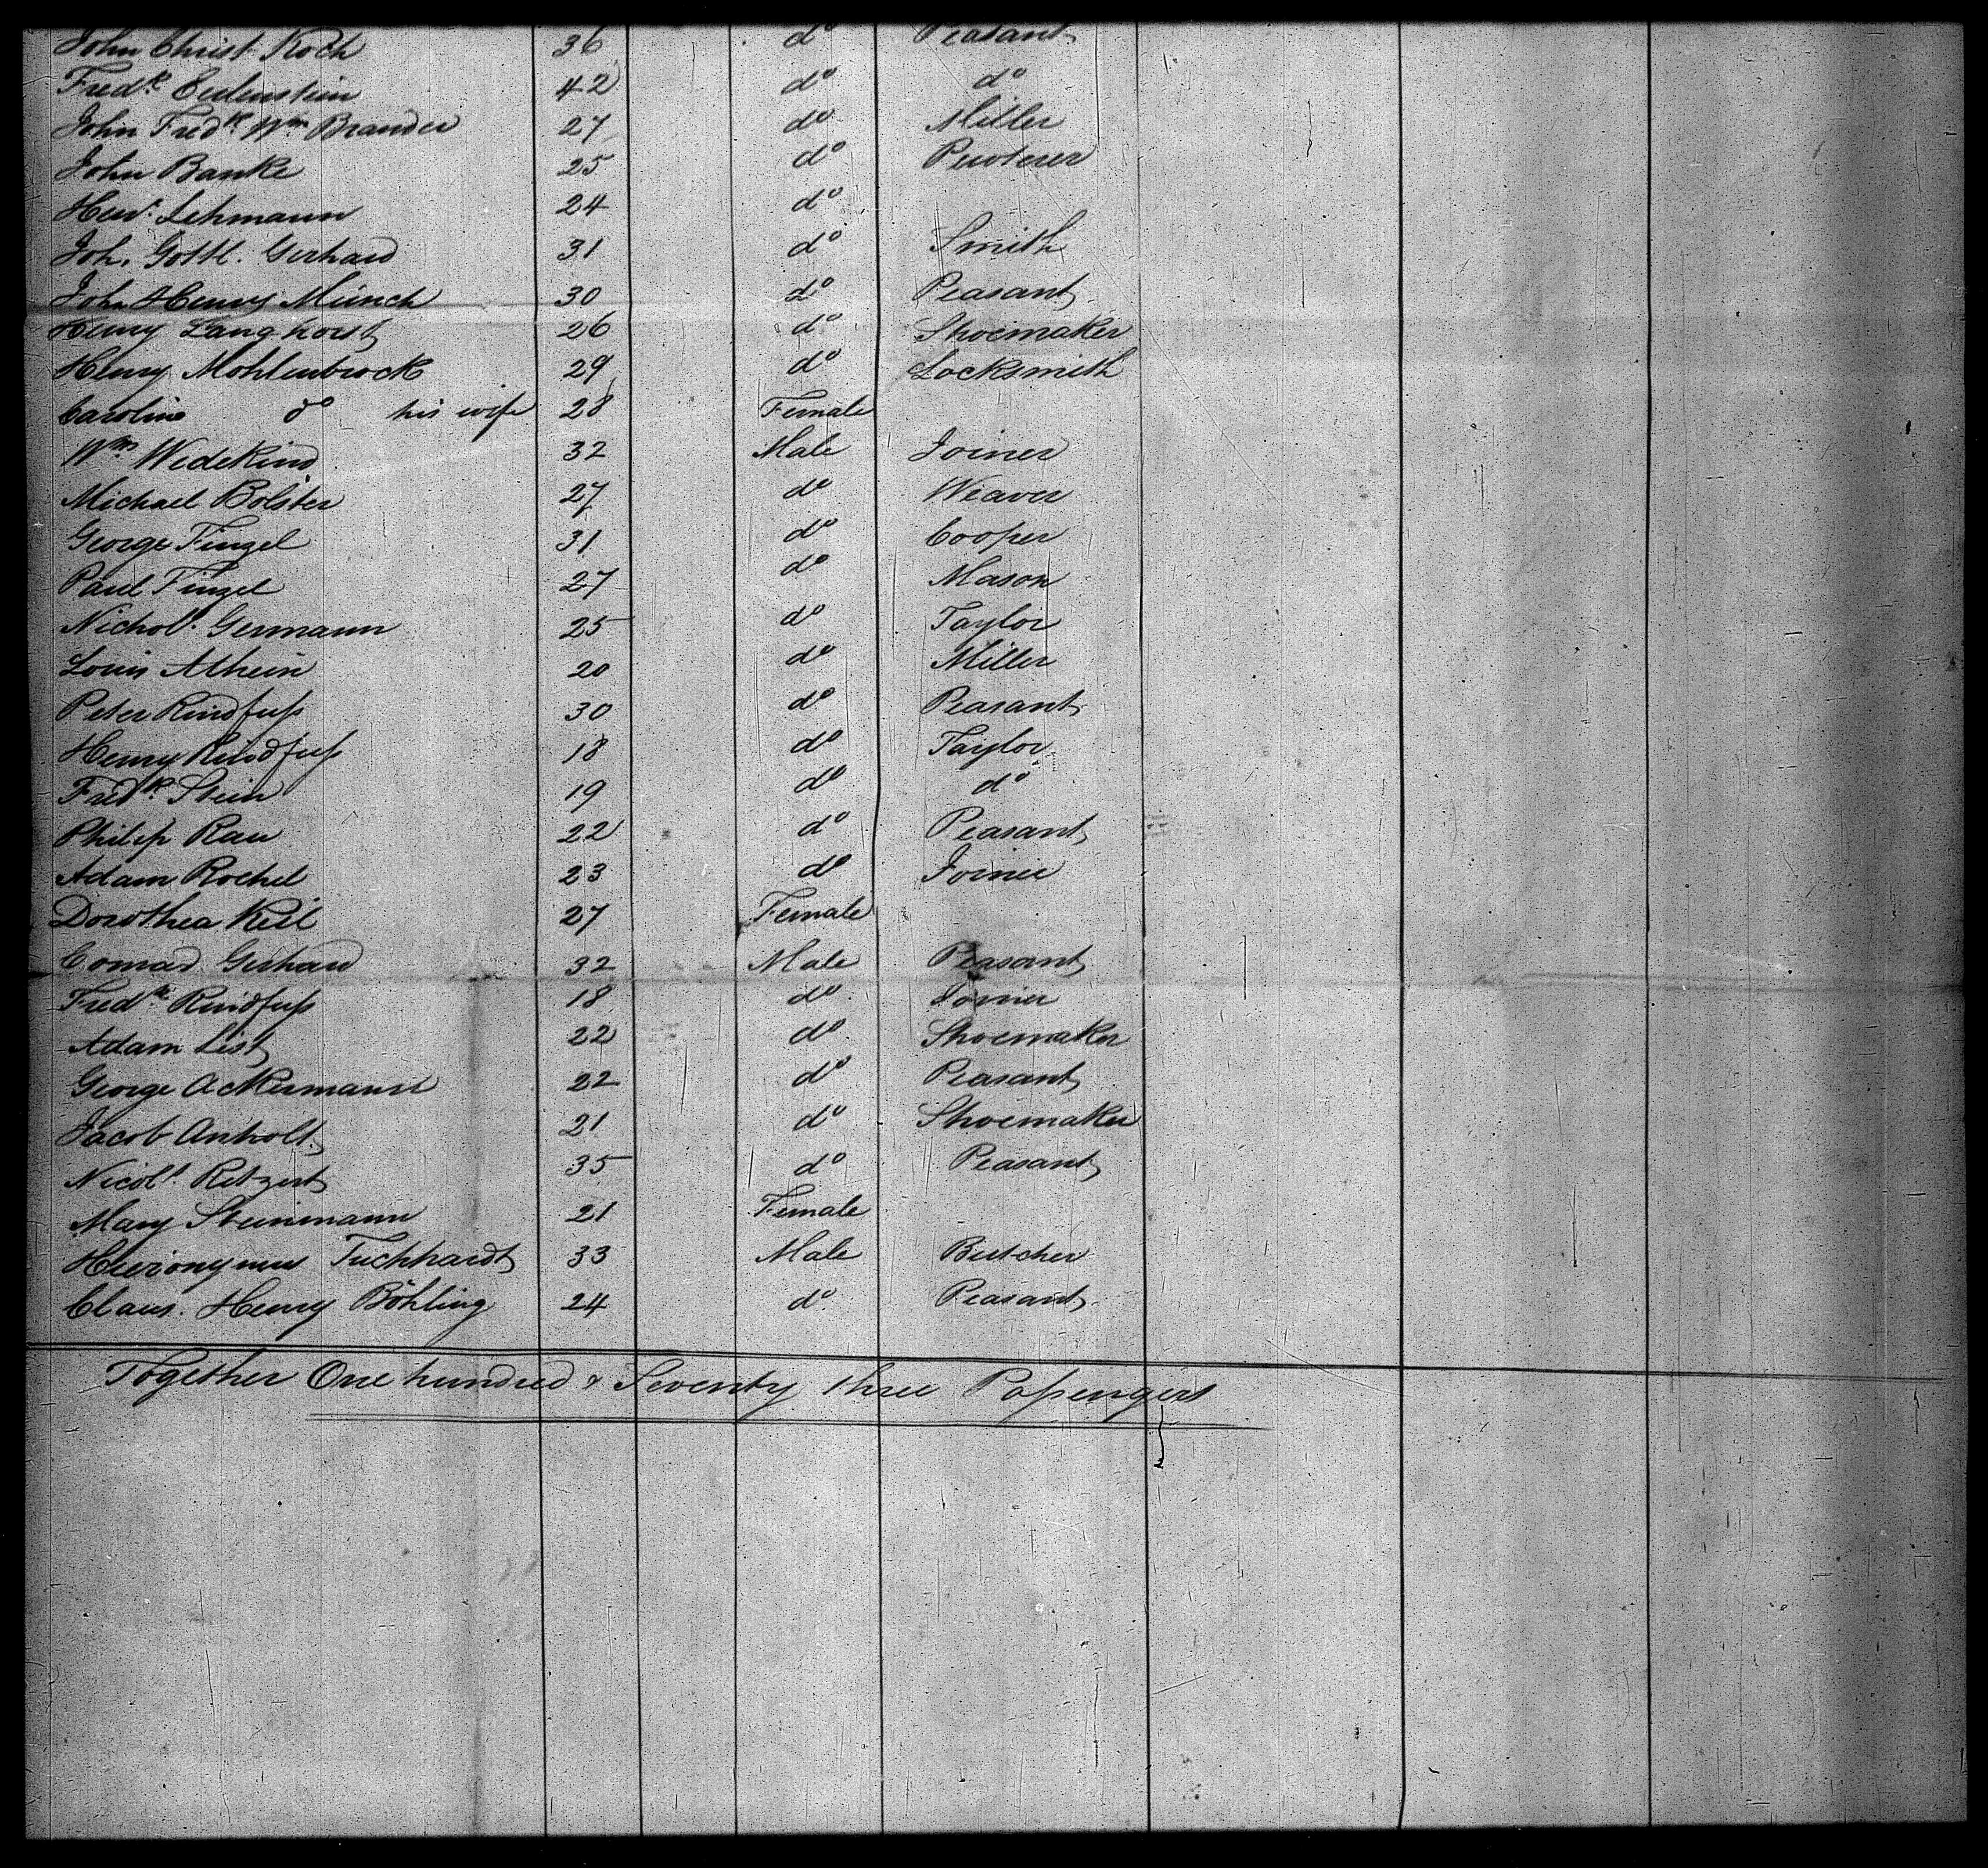 John Christ Koch 36 do Peasant
Fredk. Eulenstein 42 do do
John Fredk. Wm Brander 27 do Miller
John Banke 25 do Pewterer
Hen. Lehmann 24 do
Joh. Gottl. Gerhard 31 do Smith
John Henry Münch 30 do Peasant
Henry Langhorst 26 do Shoemaker
Henry Mohlenbrock 29 do Locksmith
Caroline do his wife 28 Female
Wm Widekind 32 Male Joiner
Michael Bolster 27 do Weaver
George Finzel 31 do Cooper
Paul Finzel 27 do Mason
Nichol. Germann 25 do Taylor
Louis 20 do Miller
Peter Rindfuß 30 do Peasant
Henry Rindfuß 18 do Taylor
Fredk. Stein 19 do do
Philip Rau 22 do Peasant
Adam Rochel 23 do Joiner
Dorothea Keil 27 Female
Conrad Gerhard 32 Male Peasant
Fredk Rindfuß 18 do Joiner
Adam List 22 do Shoemaker
George Ackermann 22 do Peasant
Jacob 21 do Shoemaker
Nicols Ritzert 35 do Peasant
Mary Steinmann 21 Female
Hieronymus Tuchhardt 33 Male Butcher
Claus. Henry Böhling 24 do Peasant
Together One hundred & Seventy three Paßengers